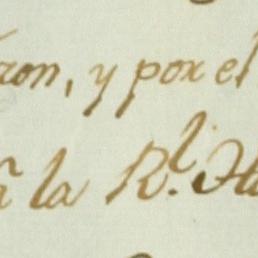 ron, y por el
a la Rl. Ha